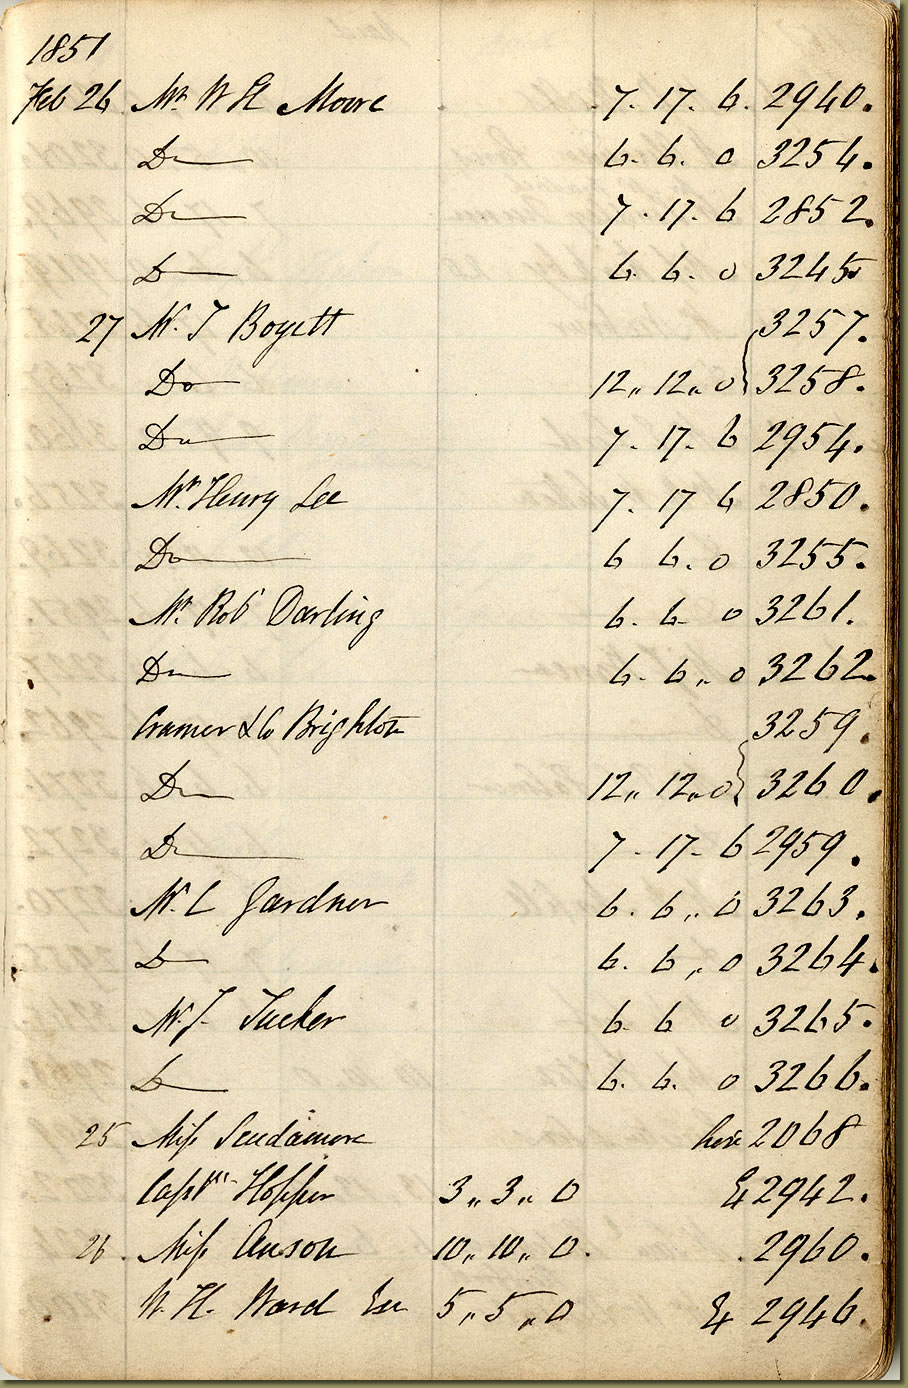 1851
Feb 26 Mr W H Moore 7. 17. 6. 2940.
Do 6. 6. 0 3254.
Do 7. 17. 6 2852.
Do 6. 6. 0 3245
27 Mr. J Boyett 3257.
Do 12,, 12,, 0 3258.
Do 7. 17. 6 2954.
Mr. Henry Lee 7. 17 6 2850.
Do 6 6. 0 3255.
Mr. Robt Darling 6. 6 0 3261.
Do 6. 6,, 0 3262.
Cramer & Co Brighton 3259.
Do 12,, 12,, 0 3260.
Do 7. 17. 6 2959.
Mr. C Gardner 6. 6,, 0 3263.
Do 6. 6,, 0 3264.
Mr. J. Tucker 6. 6 0 3265.
Do 6. 6. 0 3266.
25 Miss Scudamore hire 2068
Captn Hopper 3,, 3,, 0 2942.
26. Miss Anson 10,, 10,, 0. 2960.
W. H. Ward 5,, 5,, 0 2946.